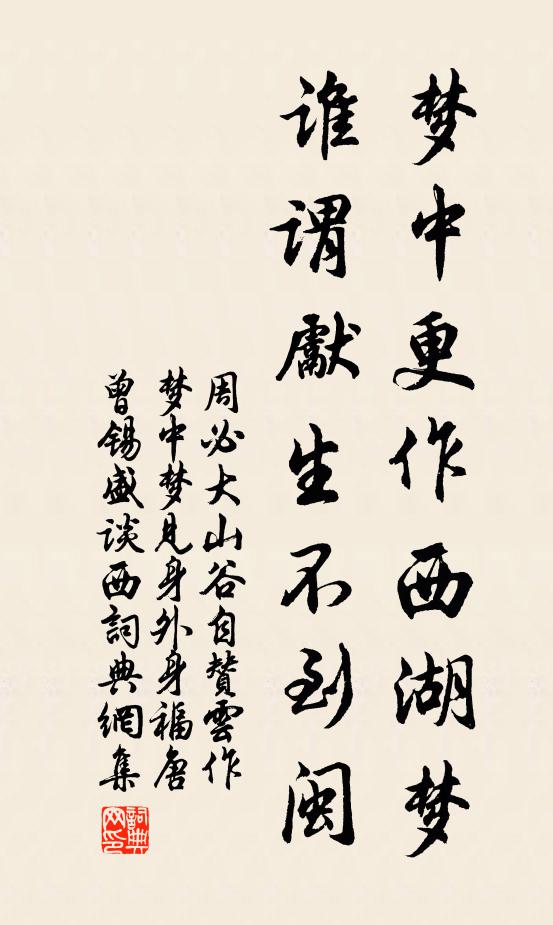 梦中更作西湖梦
谁谓獻生不到闽
周必大山谷自赞雲作
梦中梦见身外身福唐
曾锡盛谈西詞典網集
詞典网印